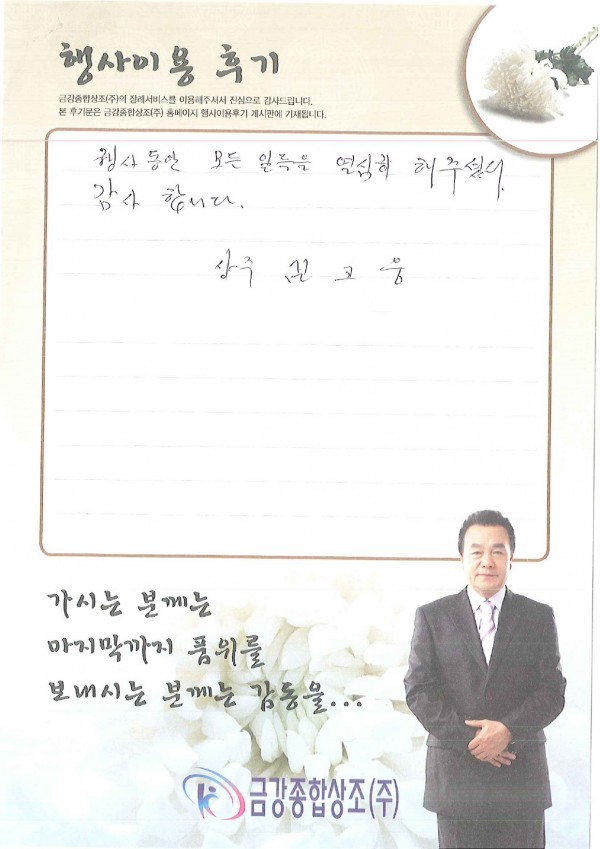 행사이용 후기
금강종합상조(주)의 장례서비스를 이용해주셔서 진심으로 감사드립니다.
본 후기문은 금강종합상조(주) 홈페이지 행사이용후기 게시판에 기재됩니다.
행사 동안 모든 일들을 열심히 해주셔서
감사 합니다.
상주 고웅
가시는 분께는
마지막까지 품위를
보내시는 분께는 감동을...
금강종합상조(주)